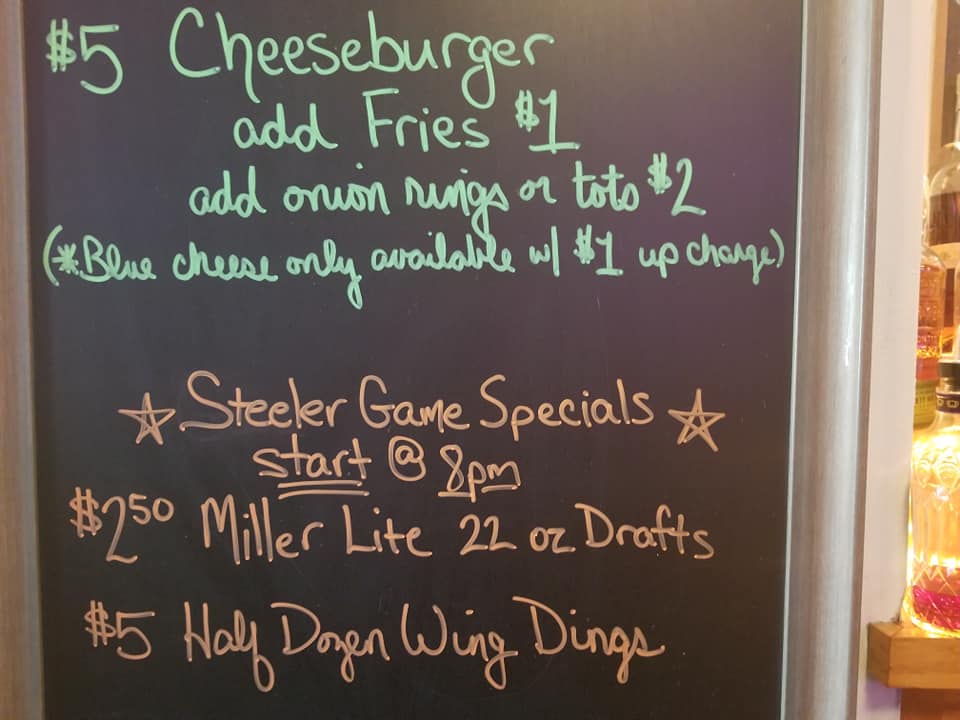 $5 Cheeseburger
add Fries $1
add onion rings or tots $2
(*Blue cheese only available w/ $1 up charge)
☆ Steeler Game Specials ☆
start @ 8pm
$2.50 Miller Lite 22 oz Drafts
$5 Half Dozen Wing Dings